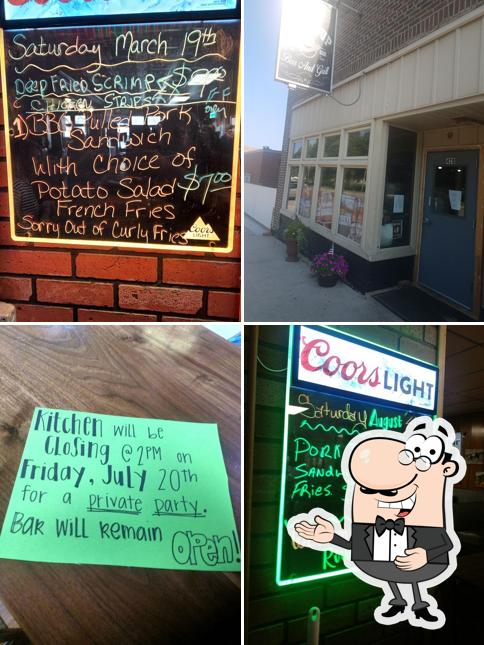 Coors LIGHT
Saturday March 19th
DEEP FRIED SCRIMP
CHICKEN STRIPS
BBQ Pulled Pork
Sandwich
With Choice of
Potato Salad $7.00
French Fries
Sorry Out of Curly Fries
Coors
LIGHT
Bar And Grill
Kitchen will be
Closing @ 2PM on
Friday, July 20th
for a private party.
Bar will remain
OPEN!
Coors LIGHT
Saturday August
Fries